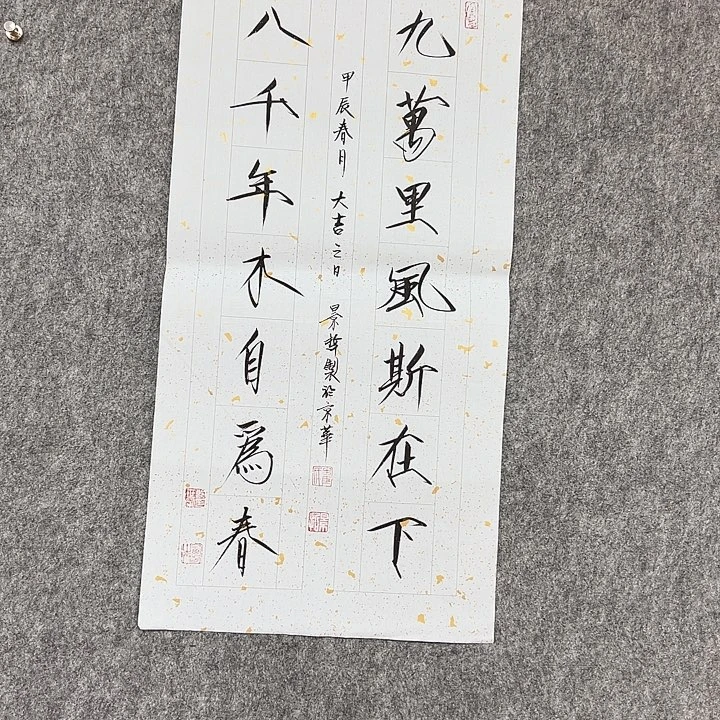 九萬里風斯在下
甲辰春月 大吉之日 景梓製於京華
八千年木自為春